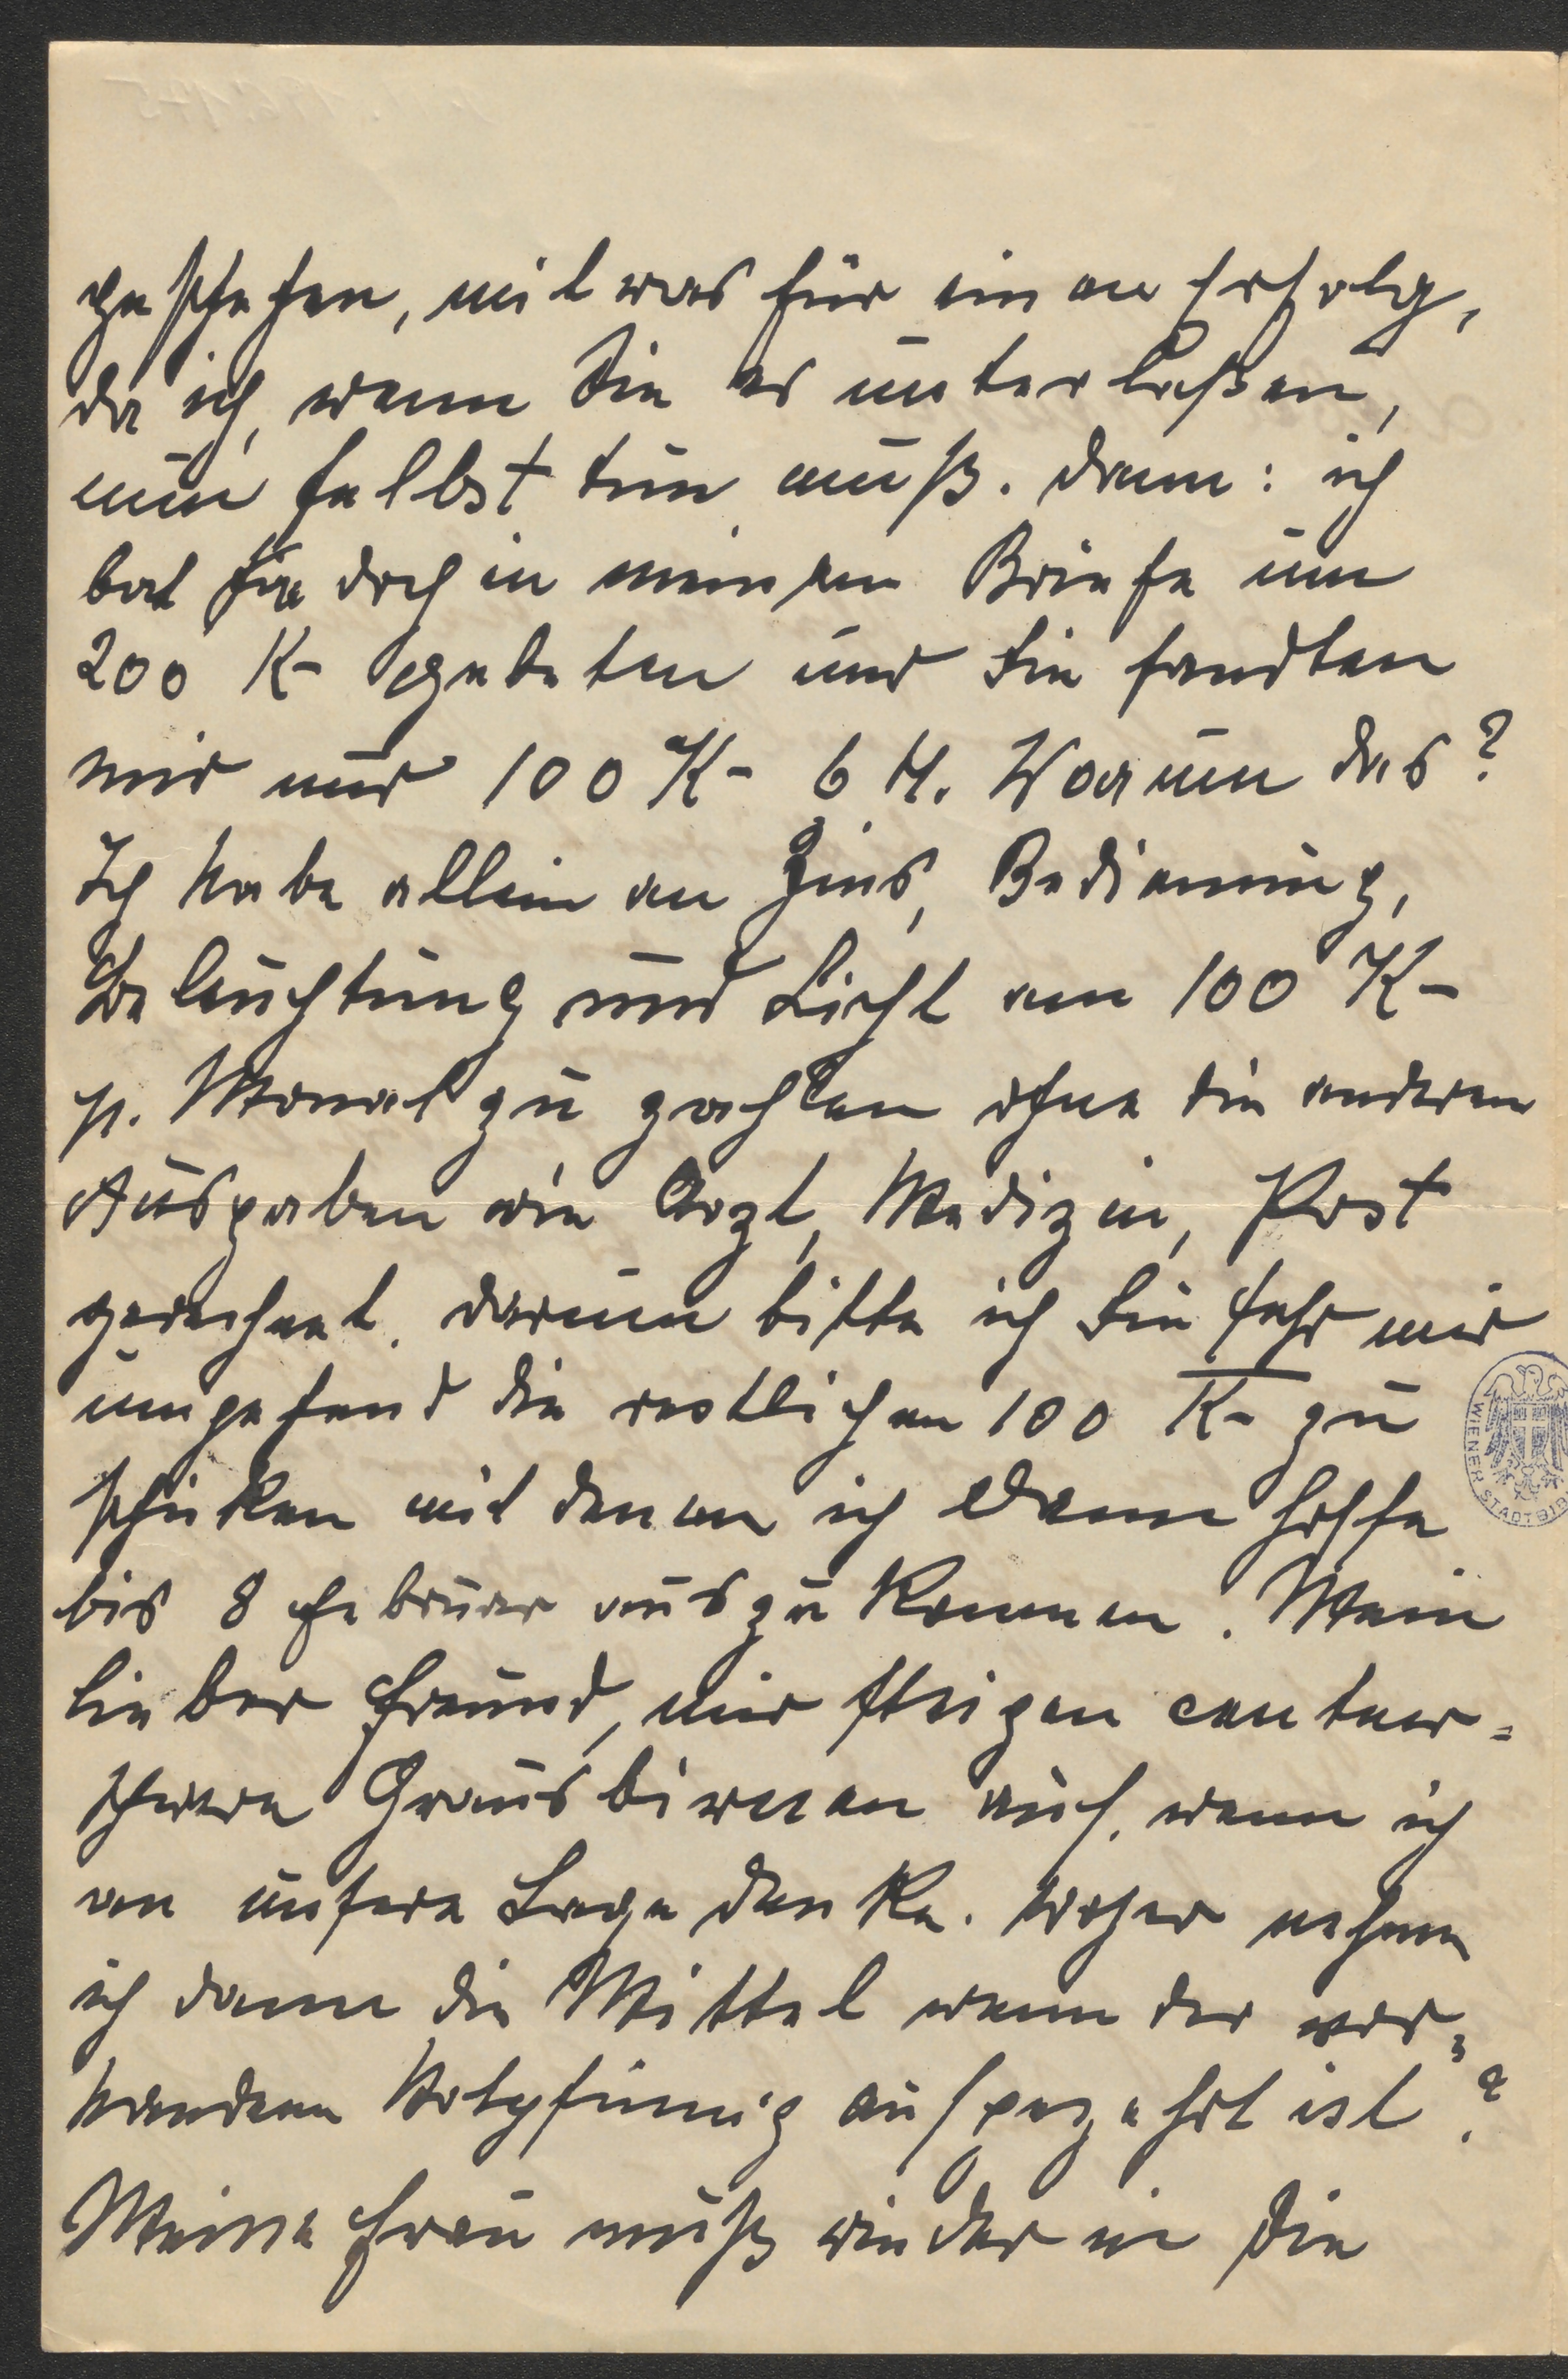 geschehen, mit was für einen Erfolg,
da ich, wenn Sie es unterlaßen,
nun selbst tun muß. Dann: ich
bat Sie doch in meinem Briefe um
200 K- gebeten und Sie sandten
mir nur 100 K- 6 H. Warum das?
Ich habe allein an Zins, Bedienung,
Beleuchtung und Licht an 100 K-
p. Monat zu zahlen ohne die anderen
Ausgaben wie Arzt, Medizin, Post
gerechnet. Darum bitte ich Sie sehr mir
umgehend die restlichen 100 K- zu
schicken mit denen ich dann hoffe
bis 8 Februar auszukommen. Mein
lieber Freund, mir steigen centner=
schwere Grausbirnen auf, wenn ich
an unsere Lage denke. Woher nehme
ich dann die Mittel wenn der vor=
handene Notpfennig aufgezehrt ist?
Meine Frau muß wieder in die
WIENER STADTBIB